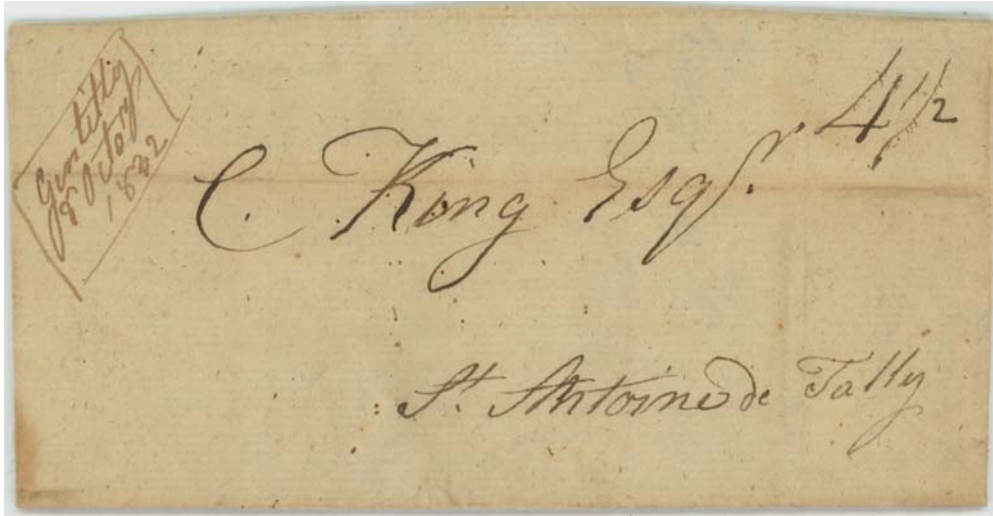 Gentilly
8 Octobr
1832
4 1/2
C. King Esqr.
St. Antoine de Tally